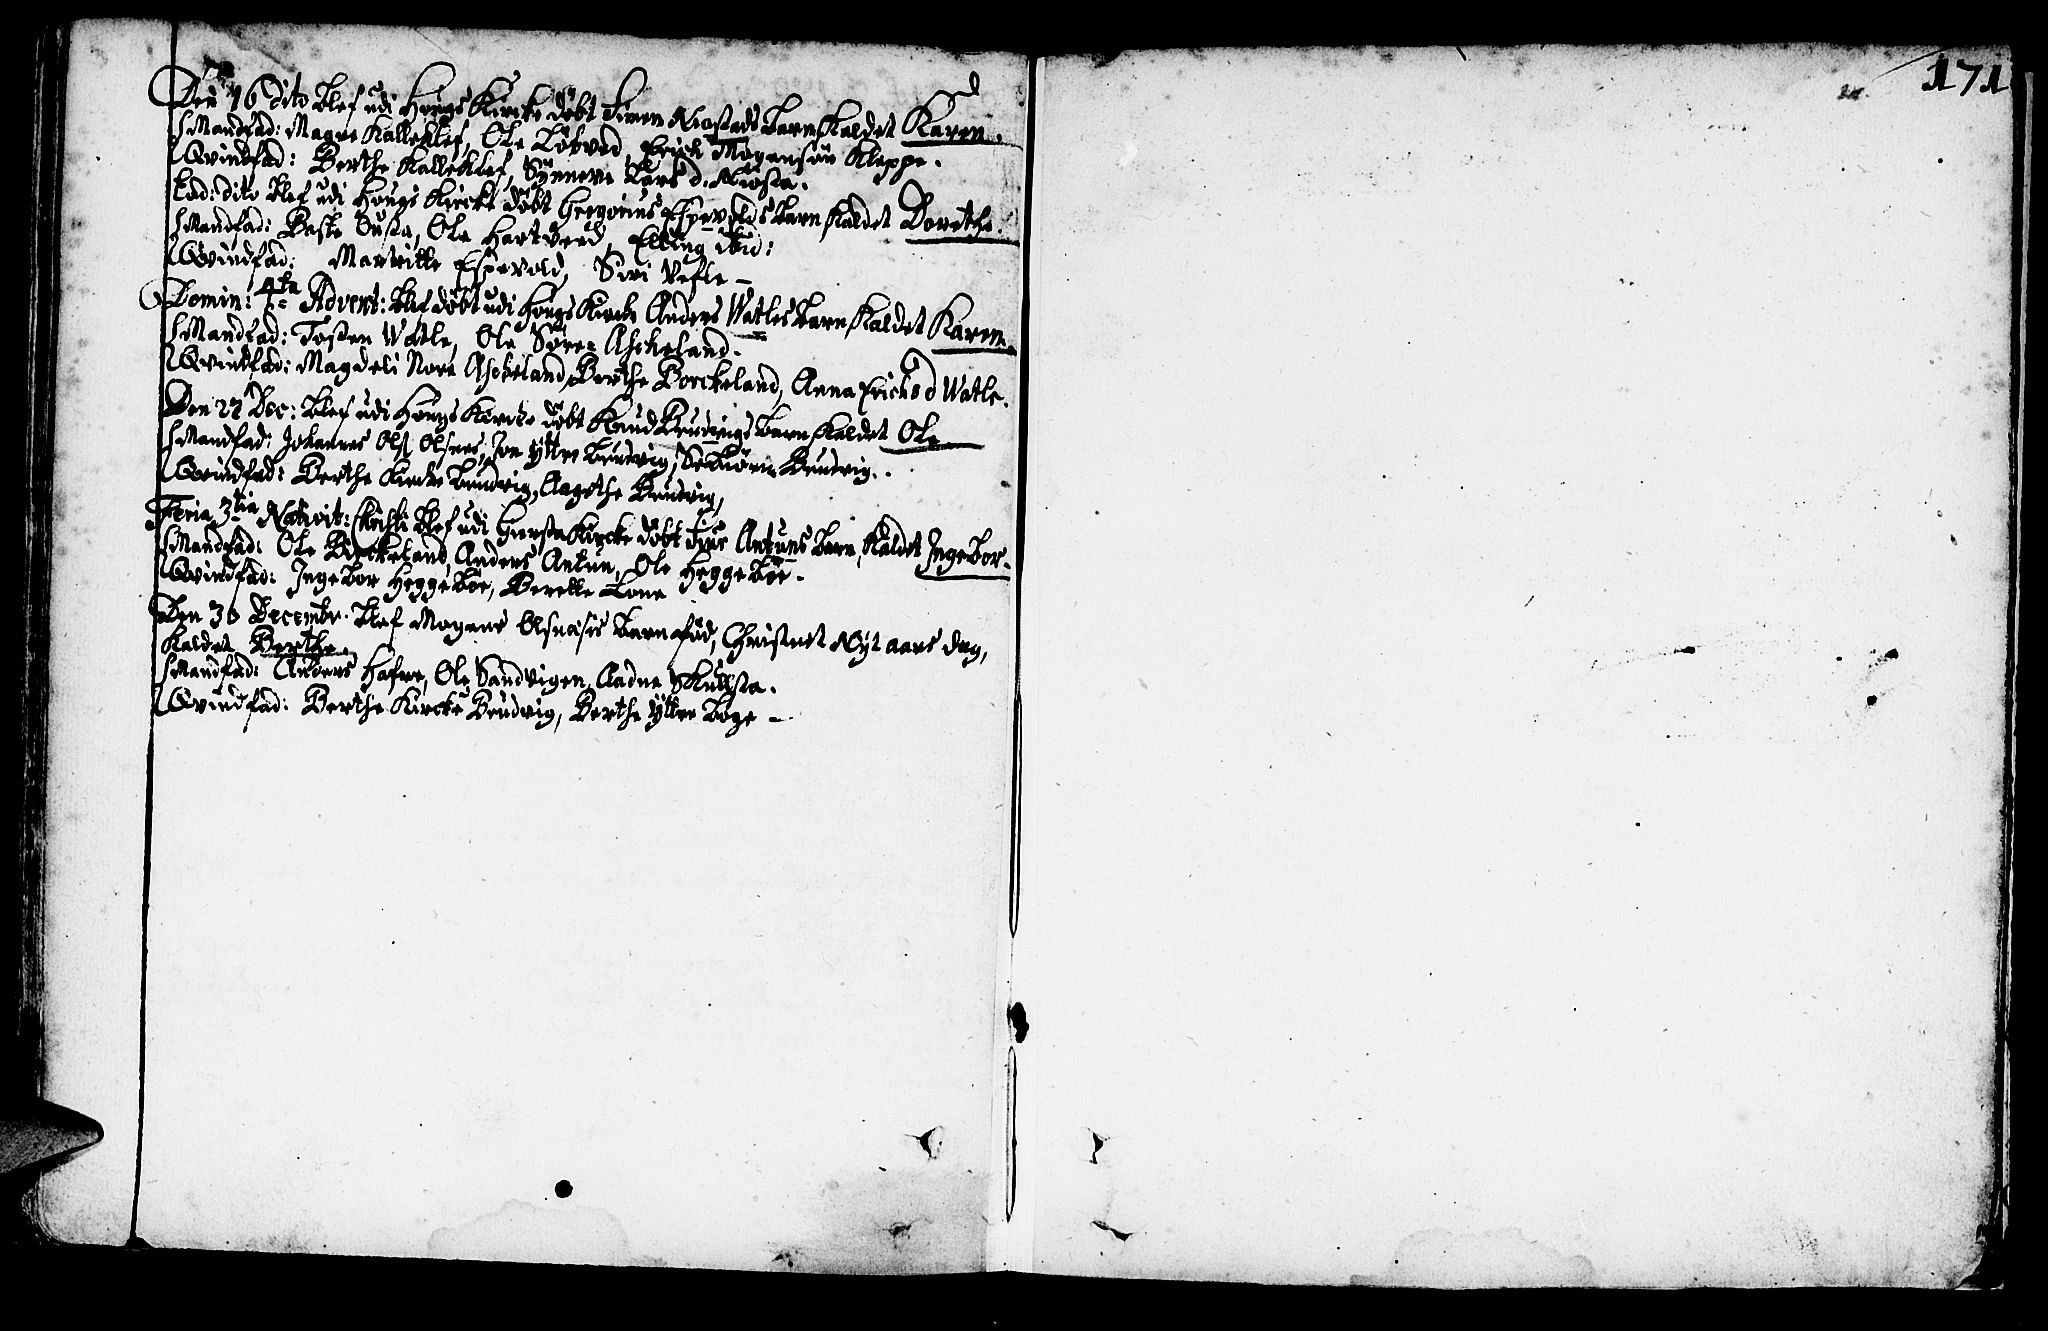 Den 16 dito blef udi Hougs Kircke döbt Simen Miøstads barn kaldet Karen.
Mandfad: Magne Kalleklef, Ole Lökved, Erich Mogensøn Kleppe.
Qvindfad: Berthe Kalleklef, Synneve Lars d. Miøsta.
Eod: dito blef udi Hougs Kircke döbt Gregorius Espevolds barn kaldet Dorethe.
Mandfad: Baste Susta, Ole Hartveed, Elling ibid:
Qvindfad: Maritte Espevold, Siri Vefle
Domin: 4ta Advent: blef döbt udi Hougs Kircke Anders Watles barn, kaldet Karen.
Mandfad: Tosten Watle, Ole Søre Askeland.
Qvindfad: Magdeli Nore Askeland, Berthe Borckeland, Anna Erichsd Watle.
Den 27 Dec: blef udi Hougs Kircke döbt Knud Brudvigs barn kaldet Ole
Mandfad: Johannes Ols Olsnes, Jon Yttre Brudvig, Brudvig.
Qvindfad: Berthe Kircke Brudvig, Aagothe Brudvig,
Feria 3tia Nativit: Christi blef udi Giersta Kircke döbt Antuns barn, kaldet Ingebor.
Mandfad: Ole Birckeland, Anders Antun, Ole Heggebøe.
Qvindfad: Ingebor Heggebøe, Berette Tone
Den 30 Decembr. blef Mogens barn föd, Christnet Nyt aars dag,
kaldet Berthe.
Mandfad: Anders Hafre, Ole Sandvigen, Aadne Skulsta.
Qvindfad: Berthe Kircke Brudvig, Berthe Yttre Böge
171